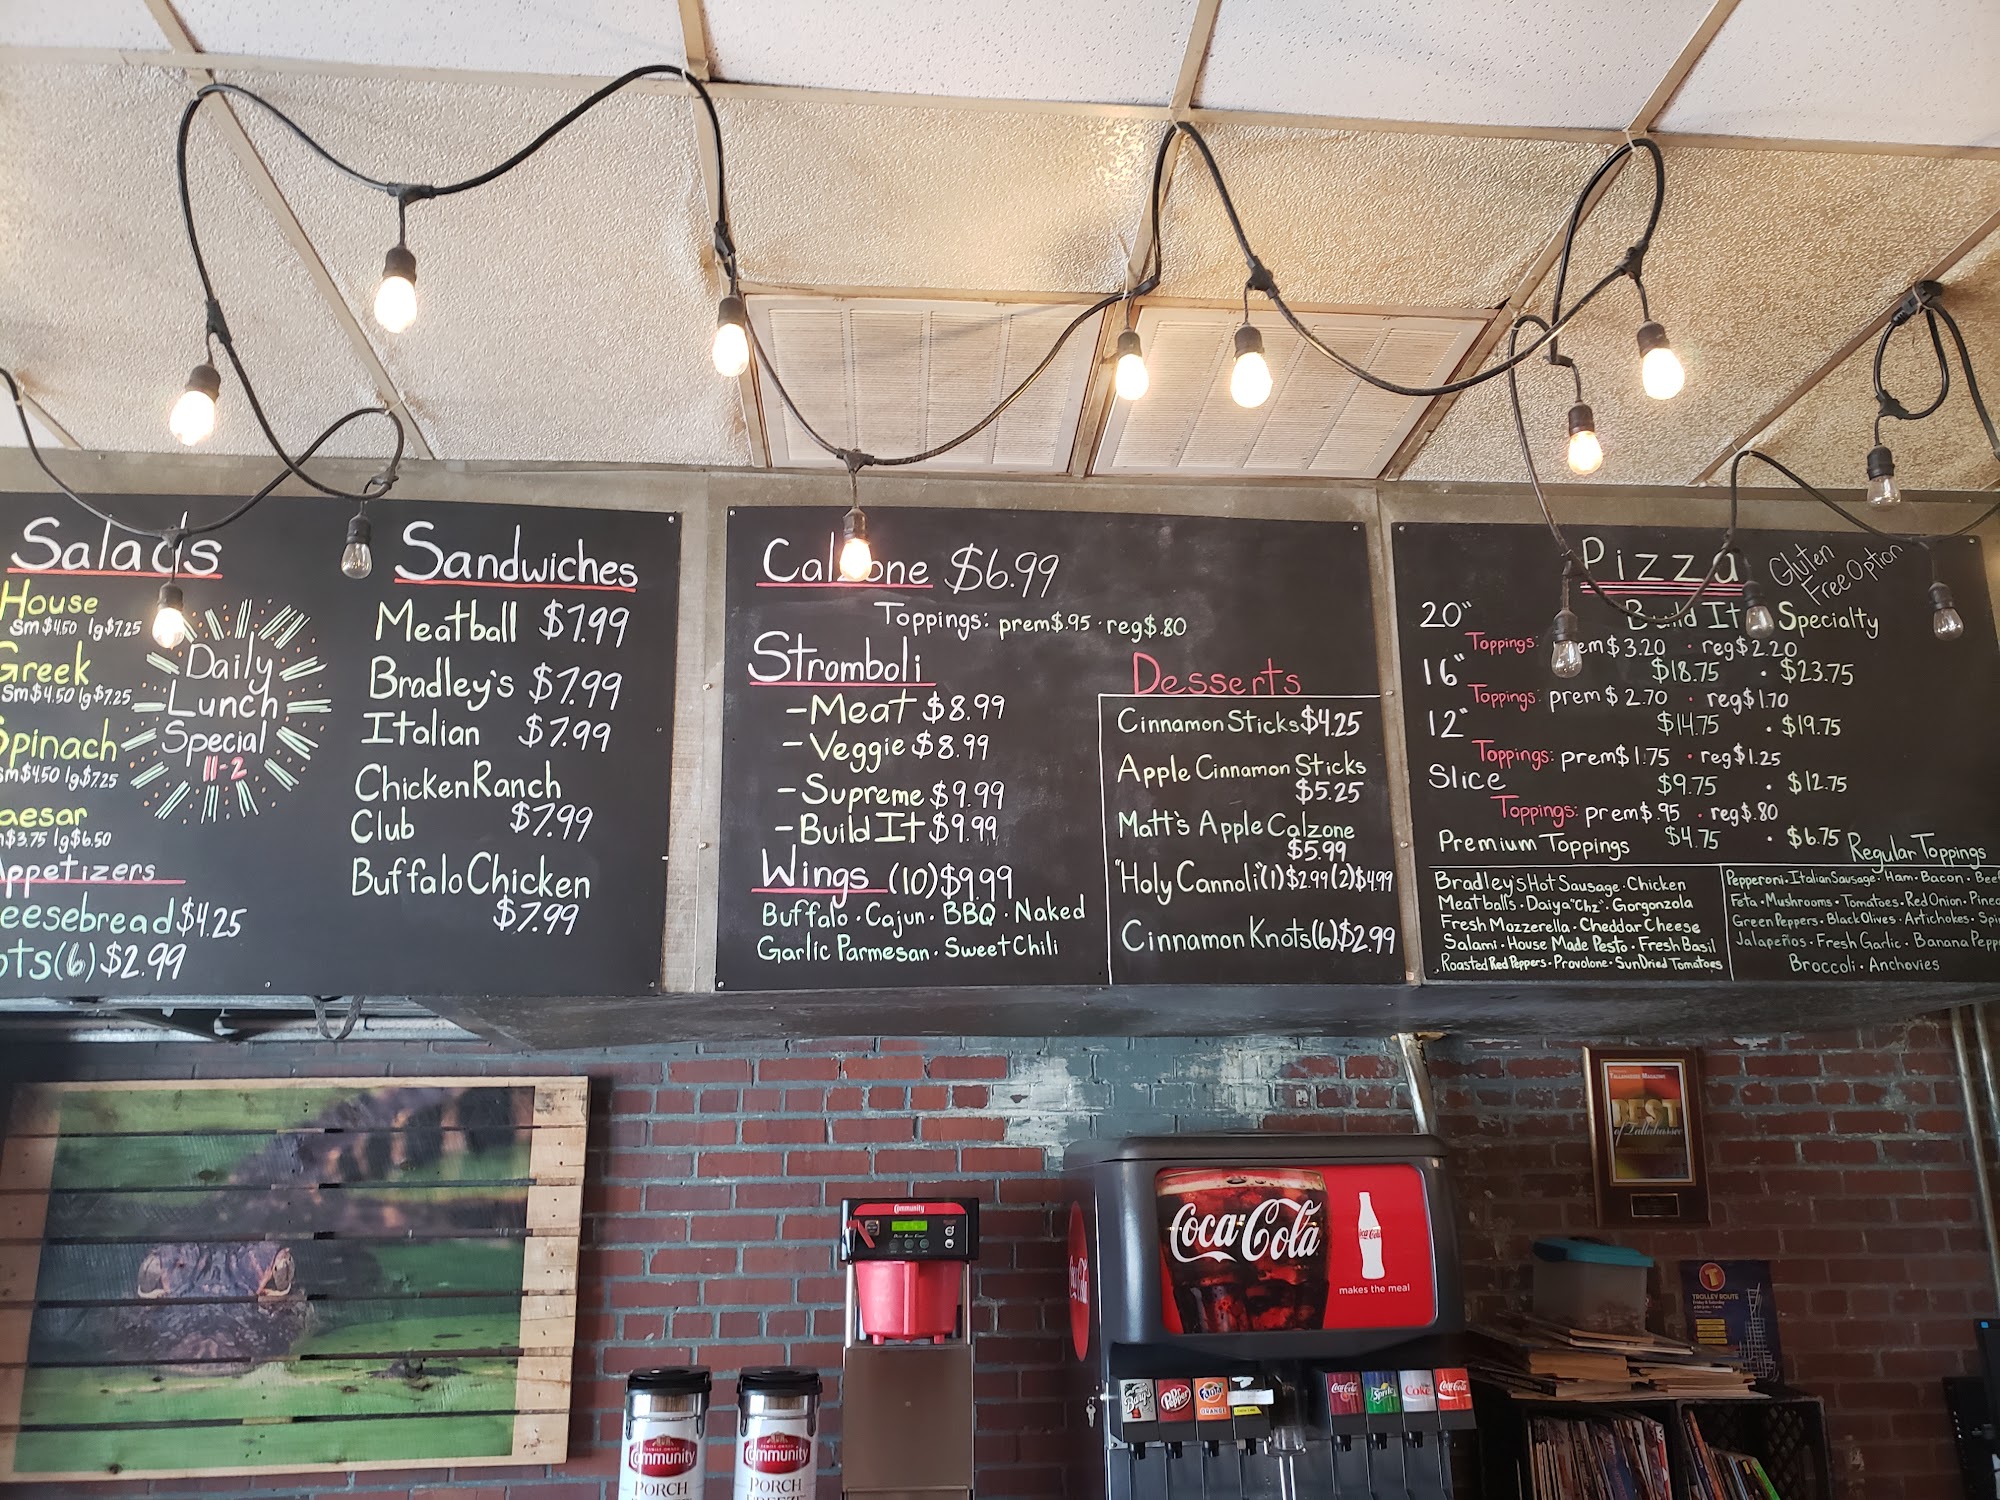 Salads
House
Sm $4.50 lg $7.25
Greek
Sm $4.50 lg $7.25
Spinach
Sm $4.50 lg $7.25
aesar
$3.75 lg $6.50
Daily
Lunch
Special
11-2
Appetizers
eesebread $4.25
ots (6) $2.99
Sandwiches
Meatball $7.99
Bradley's $7.99
Italian $7.99
Chicken Ranch
Club $7.99
Buffalo Chicken
$7.99
Calzone $6.99
Toppings: prem $.95 · reg $.80
Stromboli
- Meat $8.99
- Veggie $8.99
- Supreme $9.99
- Build It $9.99
Wings (10) $9.99
Buffalo · Cajun · BBQ · Naked
Garlic Parmesan · Sweet Chili
Desserts
Cinnamon Sticks $4.25
Apple Cinnamon Sticks
$5.25
Matt's Apple Calzone
$5.99
"Holy Cannoli" (1) $2.99 (2) $4.99
Cinnamon Knots (6) $2.99
Pizza
Gluten
Free Option
Build It Specialty
20"
Toppings: prem $3.20 · reg $2.20
$18.75 · $23.75
16"
Toppings: prem $2.70 · reg $1.70
$14.75 · $19.75
12"
Toppings: prem $1.75 · reg $1.25
$9.75 · $12.75
Slice
Toppings: prem $.95 · reg $.80
$4.75 · $6.75
Premium Toppings
Bradley's Hot Sausage · Chicken
Meatballs · Daiya "Chz" · Gorgonzola
Fresh Mozzerella · Cheddar Cheese
Salami · House Made Pesto · Fresh Basil
Roasted Red Peppers · Provolone · Sun Dried Tomatoes
Regular Toppings
Pepperoni · Italian Sausage · Ham · Bacon · Beef
Feta · Mushrooms · Tomatoes · Red Onion · Pinea
Green Peppers · Black Olives · Artichokes · Spi
Jalapeños · Fresh Garlic · Banana Pepp
Broccoli · Anchovies
Tallahassee Magazine
BEST
of Tallahassee
Community
Coca-Cola
Coca-Cola
makes the meal
Coca-Cola
Barq's
Dr Pepper
Fanta
ORANGE
Coca-Cola
Sprite
Coke
Coca-Cola
T
TROLLEY ROUTE
Community
PORCH
BREEZE
Community
PORCH
BREEZE